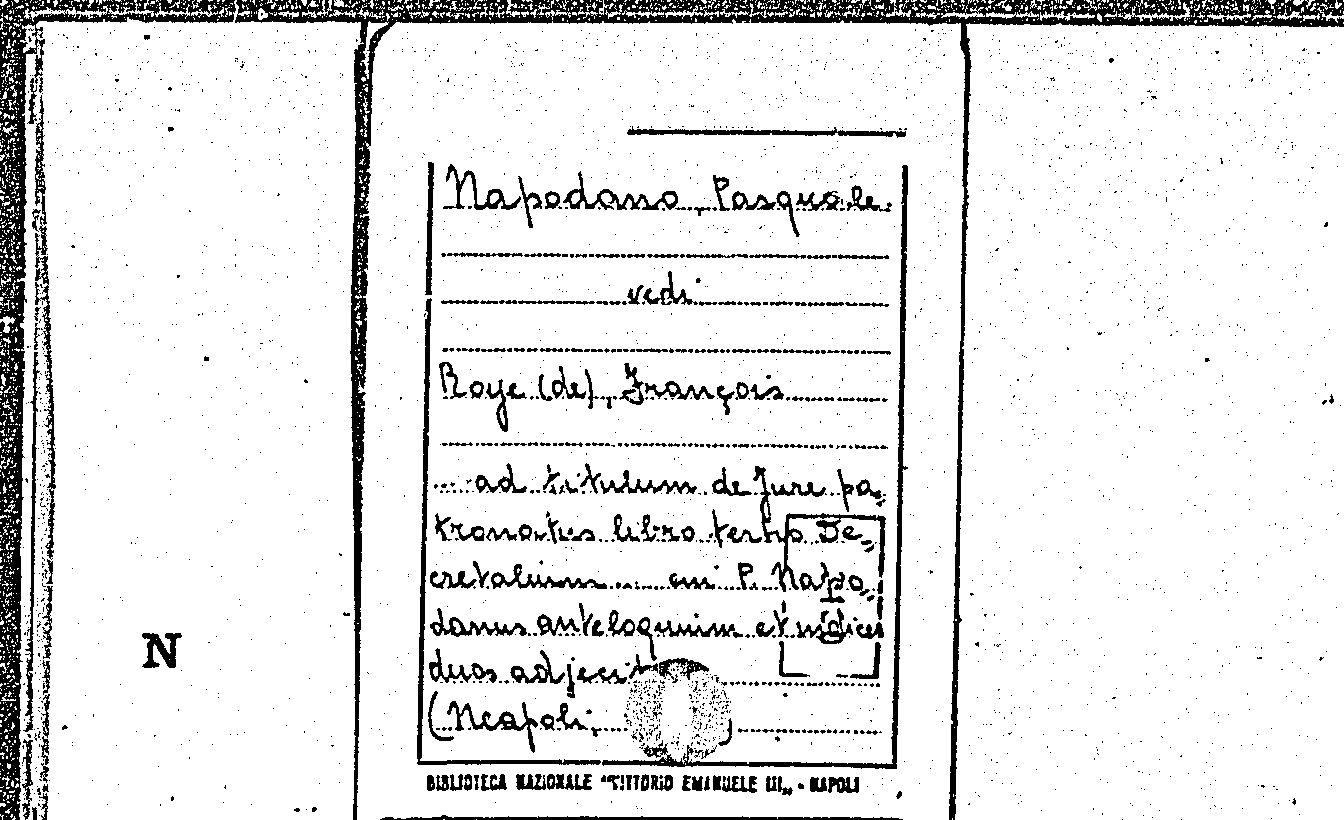 Napodano, Pasquale.
vedi
Roye (de), François
... ad titulum de Jure pa„
tronatus libro tertio De„
cretalium ... cui P. Napo„
danus anteloquium et indices
duos adjecit
(Neapoli, )
N
BIBLIOTECA NAZIONALE "VITTORIO EMANUELE III„ - NAPOLI